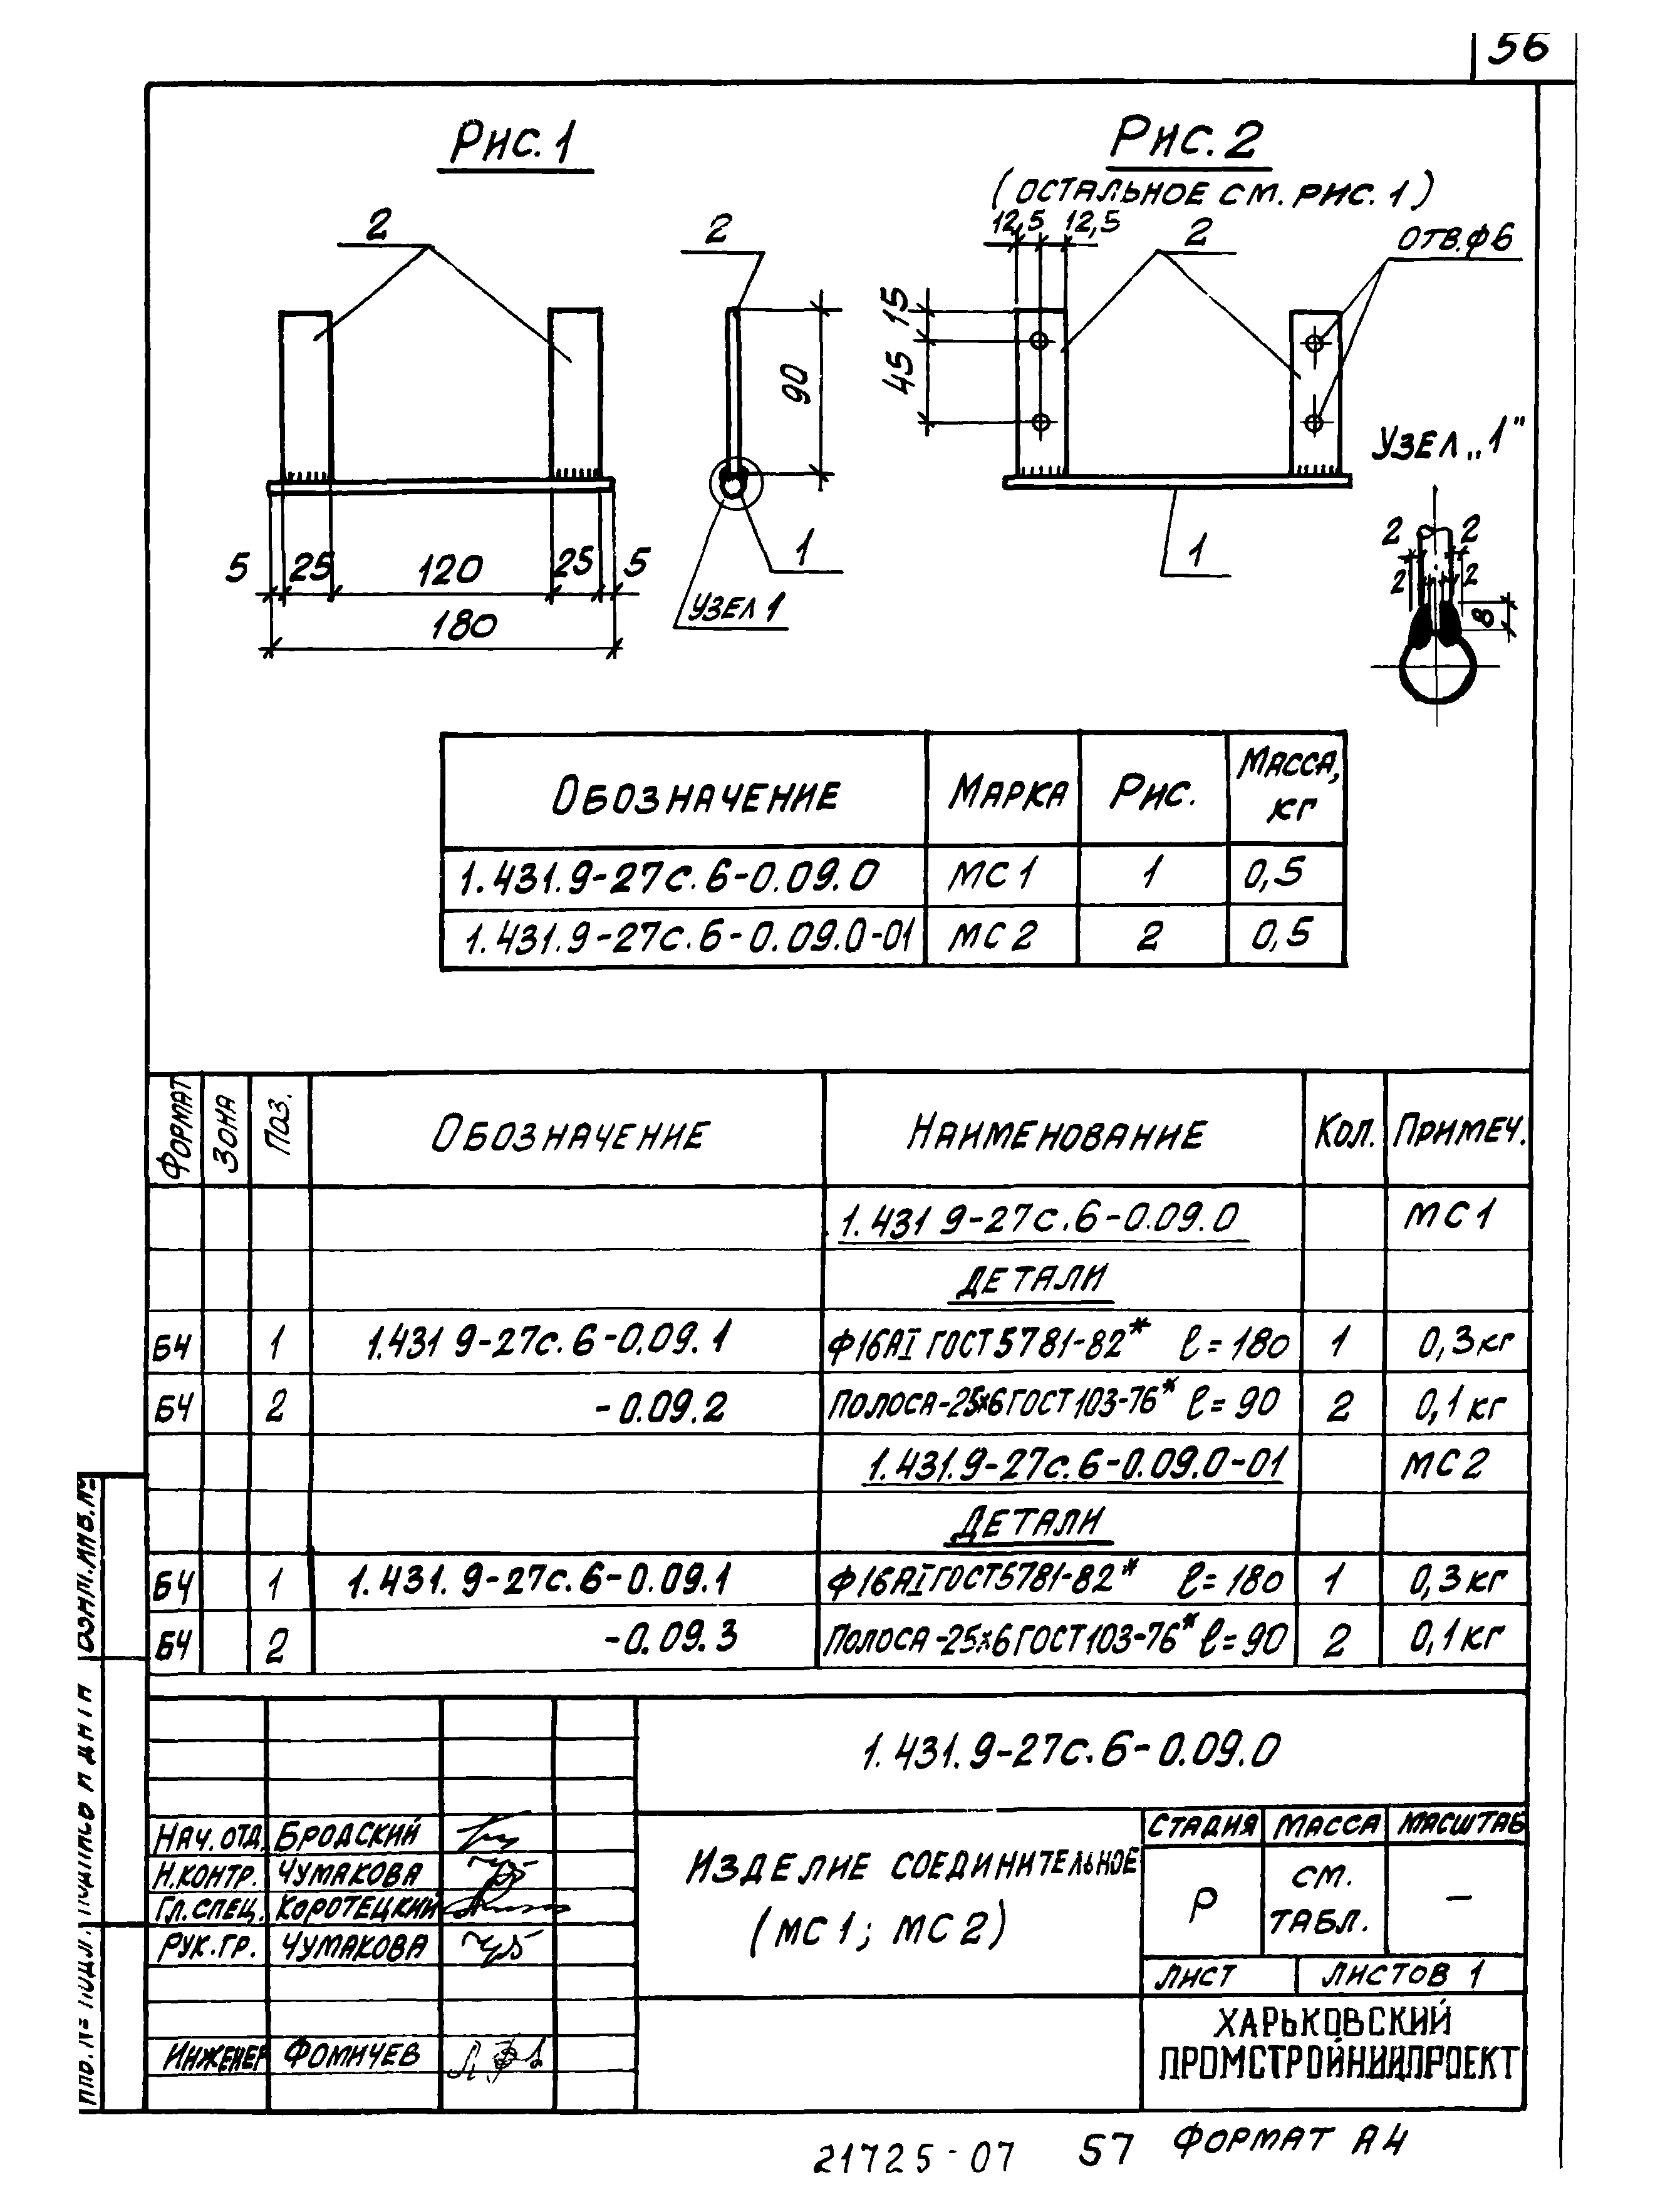 56
Рис. 1
Рис. 2
(ОСТАЛЬНОЕ СМ. РИС. 1)
2
2
12,5 12,5
2
ОТВ. Ф6
15
45
90
УЗЕЛ „1"
5 25 120 25 5
180
1
УЗЕЛ 1
1
2 2
2 2
8
ОБОЗНАЧЕНИЕ МАРКА РИС. МАССА, КГ
1.431.9-27с.6-0.09.0 МС1 1 0,5
1.431.9-27с.6-0.09.0-01 МС2 2 0,5
ФОРМАТ ЗОНА ПОЗ. ОБОЗНАЧЕНИЕ НАИМЕНОВАНИЕ КОЛ. ПРИМЕЧ.
1.431 9-27с.6-0.09.0 МС1
ДЕТАЛИ
БЧ 1 1.431 9-27с.6-0.09.1 Ф16АI ГОСТ 5781-82* ℓ=180 1 0,3 кг
БЧ 2 -0.09.2 ПОЛОСА-25×6 ГОСТ 103-76* ℓ=90 2 0,1 кг
1.431.9-27с.6-0.09.0-01 МС2
ДЕТАЛИ
БЧ 1 1.431.9-27с.6-0.09.1 Ф16АI ГОСТ 5781-82* ℓ=180 1 0,3 кг
БЧ 2 -0.09.3 ПОЛОСА-25×6 ГОСТ 103-76* ℓ=90 2 0,1 кг
1.431.9-27с.6-0.09.0
НАЧ. ОТД. БРОДСКИЙ
Н.КОНТР. ЧУМАКОВА
ГЛ.СПЕЦ. КОРОТЕЦКИЙ
РУК.ГР. ЧУМАКОВА
ИНЖЕНЕР ФОМИЧЕВ
ИЗДЕЛИЕ СОЕДИНИТЕЛЬНОЕ
(МС1; МС2)
СТАДИЯ МАССА МАСШТАБ
Р СМ. ТАБЛ. —
ЛИСТ ЛИСТОВ 1
ХАРЬКОВСКИЙ
ПРОМСТРОЙНИИПРОЕКТ
21725-07 57 ФОРМАТ А4